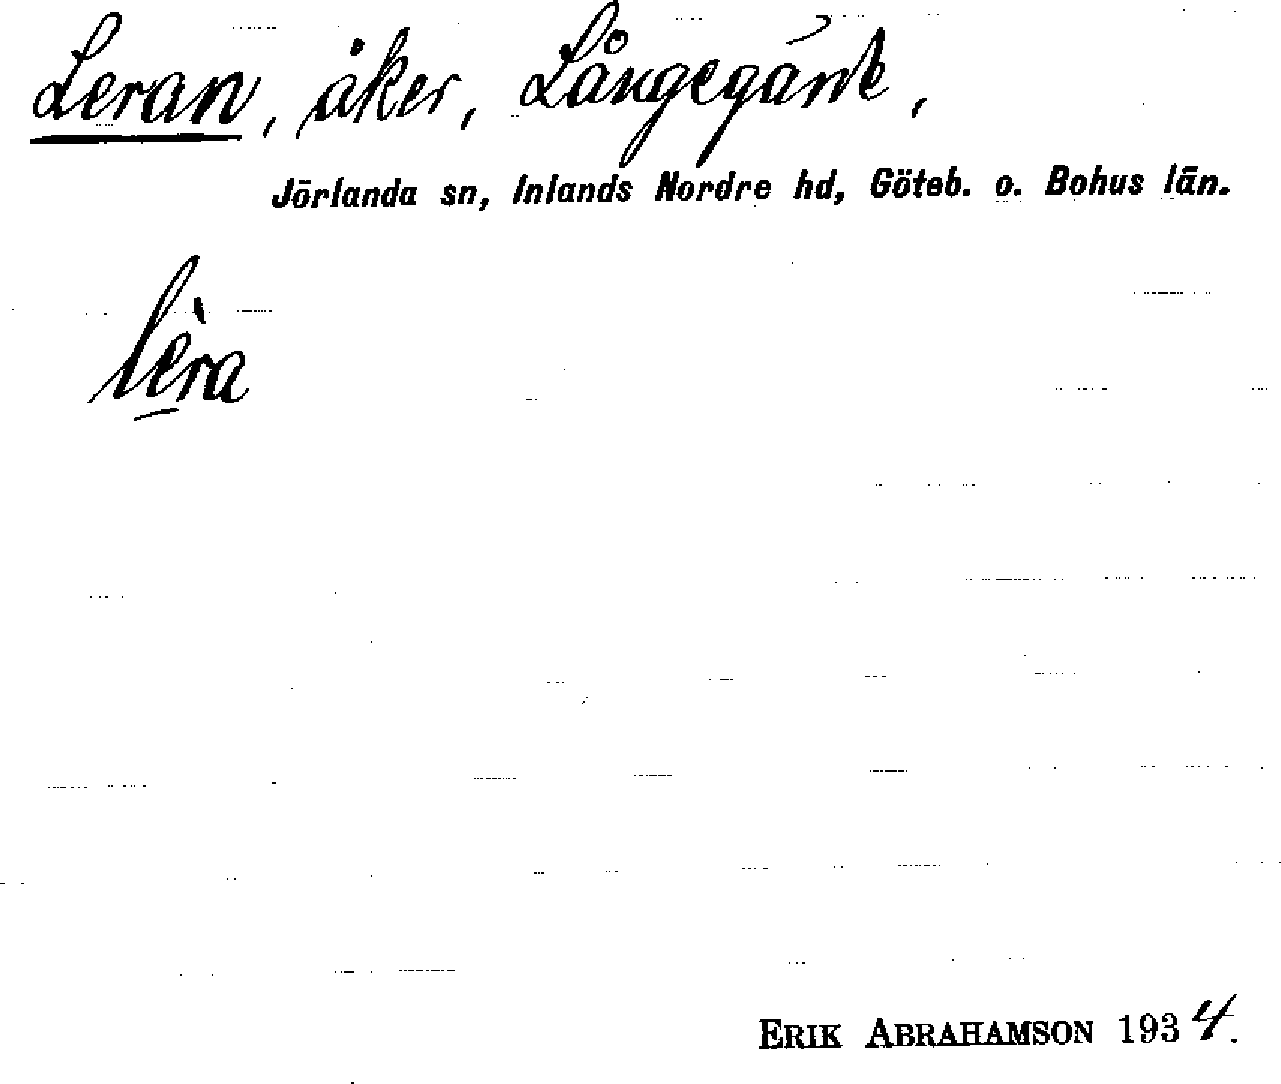 Leran, åker, Långegärde,
Jörlanda sn, Inlands Nordre hd, Göteb. o. Bohus län.
lèra
ERIK ABRAHAMSON 1934.